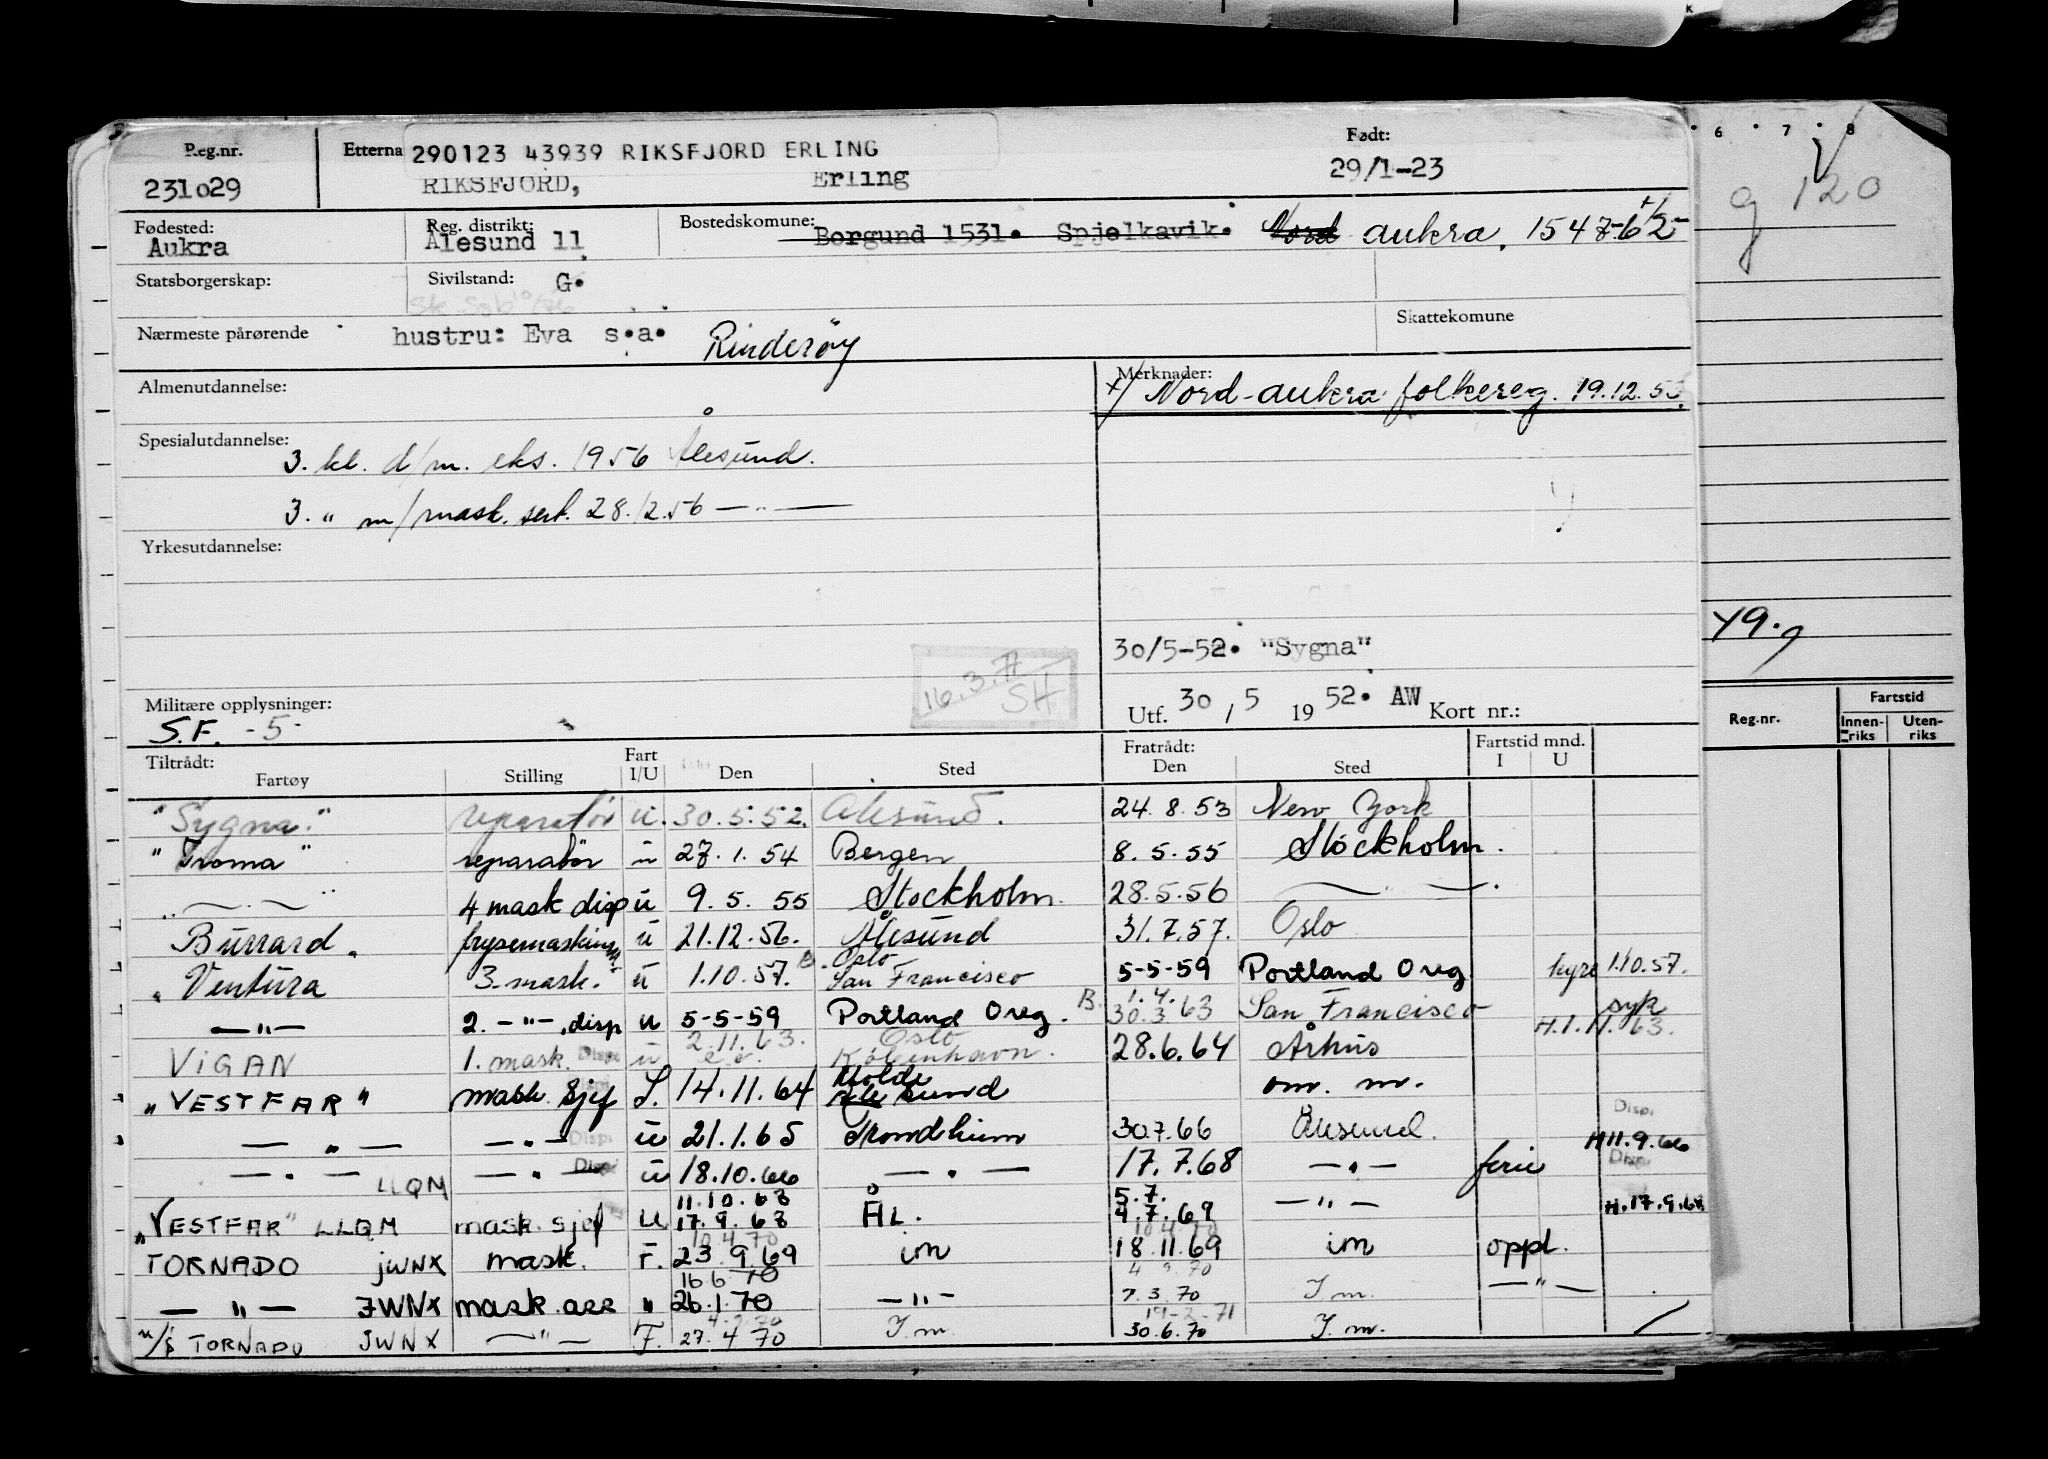 Reg.nr. Etterna 290123 43939 RIKSFJORD ERLING Født:
231029 RIKSFJORD, Erling 29/1-23
Fødested: Reg. distrikt: Bostedskomune:
Aukra Ålesund 11 Borgund 1531. Spjelkavik. Nord aukra, 1547
Statsborgerskap: Sivilstand: G.
Nærmeste pårørende hustru: Eva s.a. Rinderøy Skattekomune
Almenutdannelse: Merknader:
x/ Nord-aukra folkereg. 19.12.55
Spesialutdannelse:
3. kl. d/m. eks. 1956 Ålesund.
3. " m/mask. sert. 28.12.56 — " —
Yrkesutdannelse:
30/5-52. "Sygna"
16.3.71 SH
Militære opplysninger: Utf. 30 / 5 1952. AW Kort nr.:
S.F. -5-
Tiltrådt: Fratrådt: Fartstid mnd.
Fartøy Stilling Fart I/U Den Sted Den Sted I U
"Sygna" reparatør u. 30.5.52. Ålesund. 24.8.53 New York
"Troma" reparatør u 27.1.54 Bergen 8.5.55 Stockholm.
— " — 4 mask disp u 9.5.55 Stockholm. 28.5.56 — " —
Burrard. frysemaskinm. u 21.12.56. Ålesund 31.7.57. Oslo
"Ventura 3. mask. u 1.10.57. Oslo San Francisco 5-5-59 Portland Oreg hyre 1.10.57.
— " — 2. — " —, disp u 5-5-59 Portland Oreg. B. 1.4. 30.3 63 San Francisco syk
ViGAN 1. mask. Disp. u 2.11.63. Oslo København. 28.6.64 Århus H.1.11.63.
"VESTFAR" mask. sjef S. 14.11.64 Molde Ålesund om. m.
— " — — " — Disp. u 21.1.65 Trondheim 30.7.66 Ålesund. Disp. H 11.9.66
— " — LLQM — " — Disp. u 18.10.66 — " — 17.7.68 — " — ferie Disp.
"VESTFAR" LLQM mask. sjef u 11.10.68 17.9.68 ÅL. 5.7. 4.7.69 — " — H.17.9.68
TORNADO jWNX mask. F. 10.4.70 23.9.69 im 10.4.70 18.11.69 im oppl.
— " — JWNX mask. ass " 16.6.70 26.1.70 — " — 7.3.70 I m. — " —
m/s TORNADO JWNX — " — F. 27.4 70 I.m. 19-2-71 30.6.70 I.m.
6 7 8
g 120
g
49.9
Reg.nr. Fartstid
Innen-riks Uten-riks